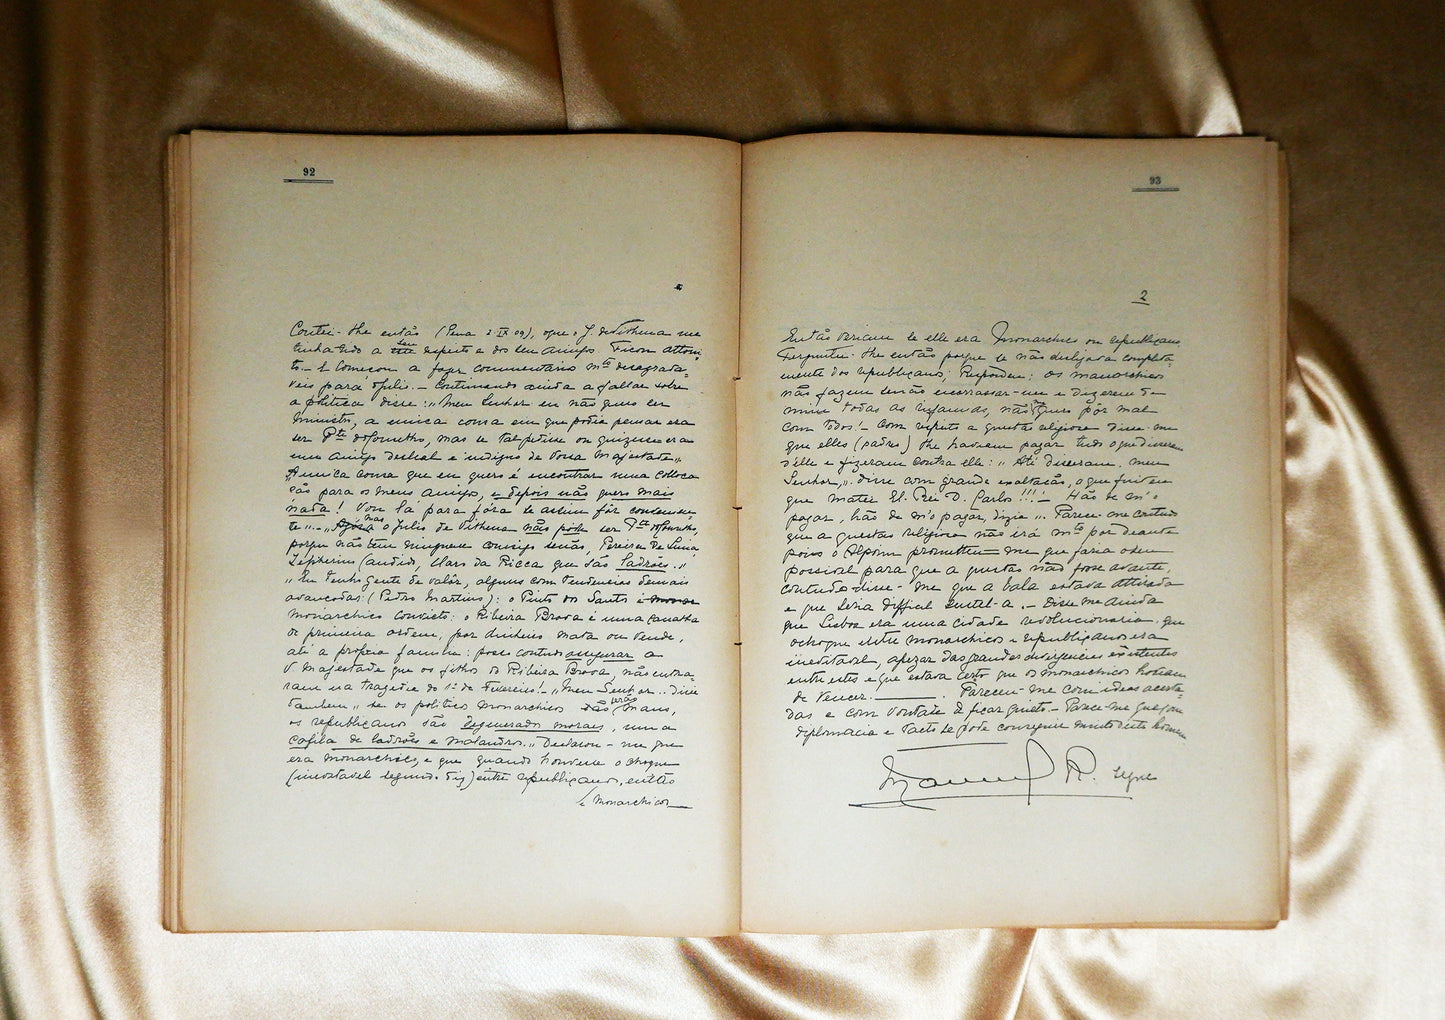 92
Contei-lhe então (Pena 2 IX 09), o que o J. de Vilhena me
tinha dito a seu respeito e dos seus amigos. Ficou attoni-
to. - E começou a fazer commentarios mto desagrada-
veis para o Julio. - Continuando ainda a fallar sobre
a politica disse: "Meu Senhor eu não quero ser
Ministro, a unica cousa em que podia pensar era
ser Pte do Conselho, mas se tal pedisse ou quizesse era
um amigo desleal e indigno de Vossa Majestade".
A unica cousa que eu quero é encontrar uma colloca-
ção para os meus amigos, e depois não quero mais
nada! Vou lá para fóra se assim fôr
te". - " mas o Julio de Vilhena não póde ser Pte do Conselho,
porque não tem ninguem comsigo senão, Pereira de Lima
Zepherino Candido, Claro da Ricca que são ladrões."
"Eu tenho gente de valôr, alguns com tendencias demais
avançadas (Pedro Martins): o Pinto dos Santos é
monarchico convicto: o Ribeira Brava é uma canalha
de primeira ordem, por dinheiro mata ou vende,
até a propria familia: posso comtudo assegurar a
V. Majestade que os filhos do Ribeira Brava, não entra-
ram na tragedia do 1º de Fevereiro. - "Meu Senhor" disse
tambem "se os politicos monarchicos são maus,
os republicanos são degenerados moraes, uma
cafila de ladrões e malandros." Declarou-me que
era monarchico, e que quando houvesse o choque
(inevitavel segundo diz) entre republicanos, então
e monarchicos
93
2
Então veriam se elle era Monarchico ou republicano.
Perguntei-lhe então porque se não desligava completa-
mente dos republicanos; Respondeu: os monarchicos
não fazem senão escorraçar-me e dizerem de
mim todas as infamias, não quero pôr mal
com todos! - Com respeito a questão religiosa disse-me
que elles (padres) lhe haviam pagar tudo o que disseram
d'elle e fizeram contra elle: "Até disseram, meu
Senhor", disse com grande exaltação, o que fui eu
que matei El-Rei D. Carlos!!! - Hão de m'o
pagar, hão de m'o pagar, dizia". Parece-me comtudo
que a questão religiosa não irá mto por deante
pois o Alpoim prometteu-me que faria o seu
possivel para que a questão não fosse avante,
comtudo disse-me que a bala estava atirada
e que seria difficil sustel-a. - Disse-me ainda
que Lisboa era uma cidade revolucionaria, que
o choque entre monarchicos e republicanos era
inevitavel, apezar das grandes divergencias existentes
entre estes e que estava certo que os monarchicos haviam
de vencer. Pareceu-me com ideas acerta-
das e com vontade de ficar quieto. - Parece-me que com
diplomacia e tacto se póde conseguir muito d'este homem
Manuel R. segue